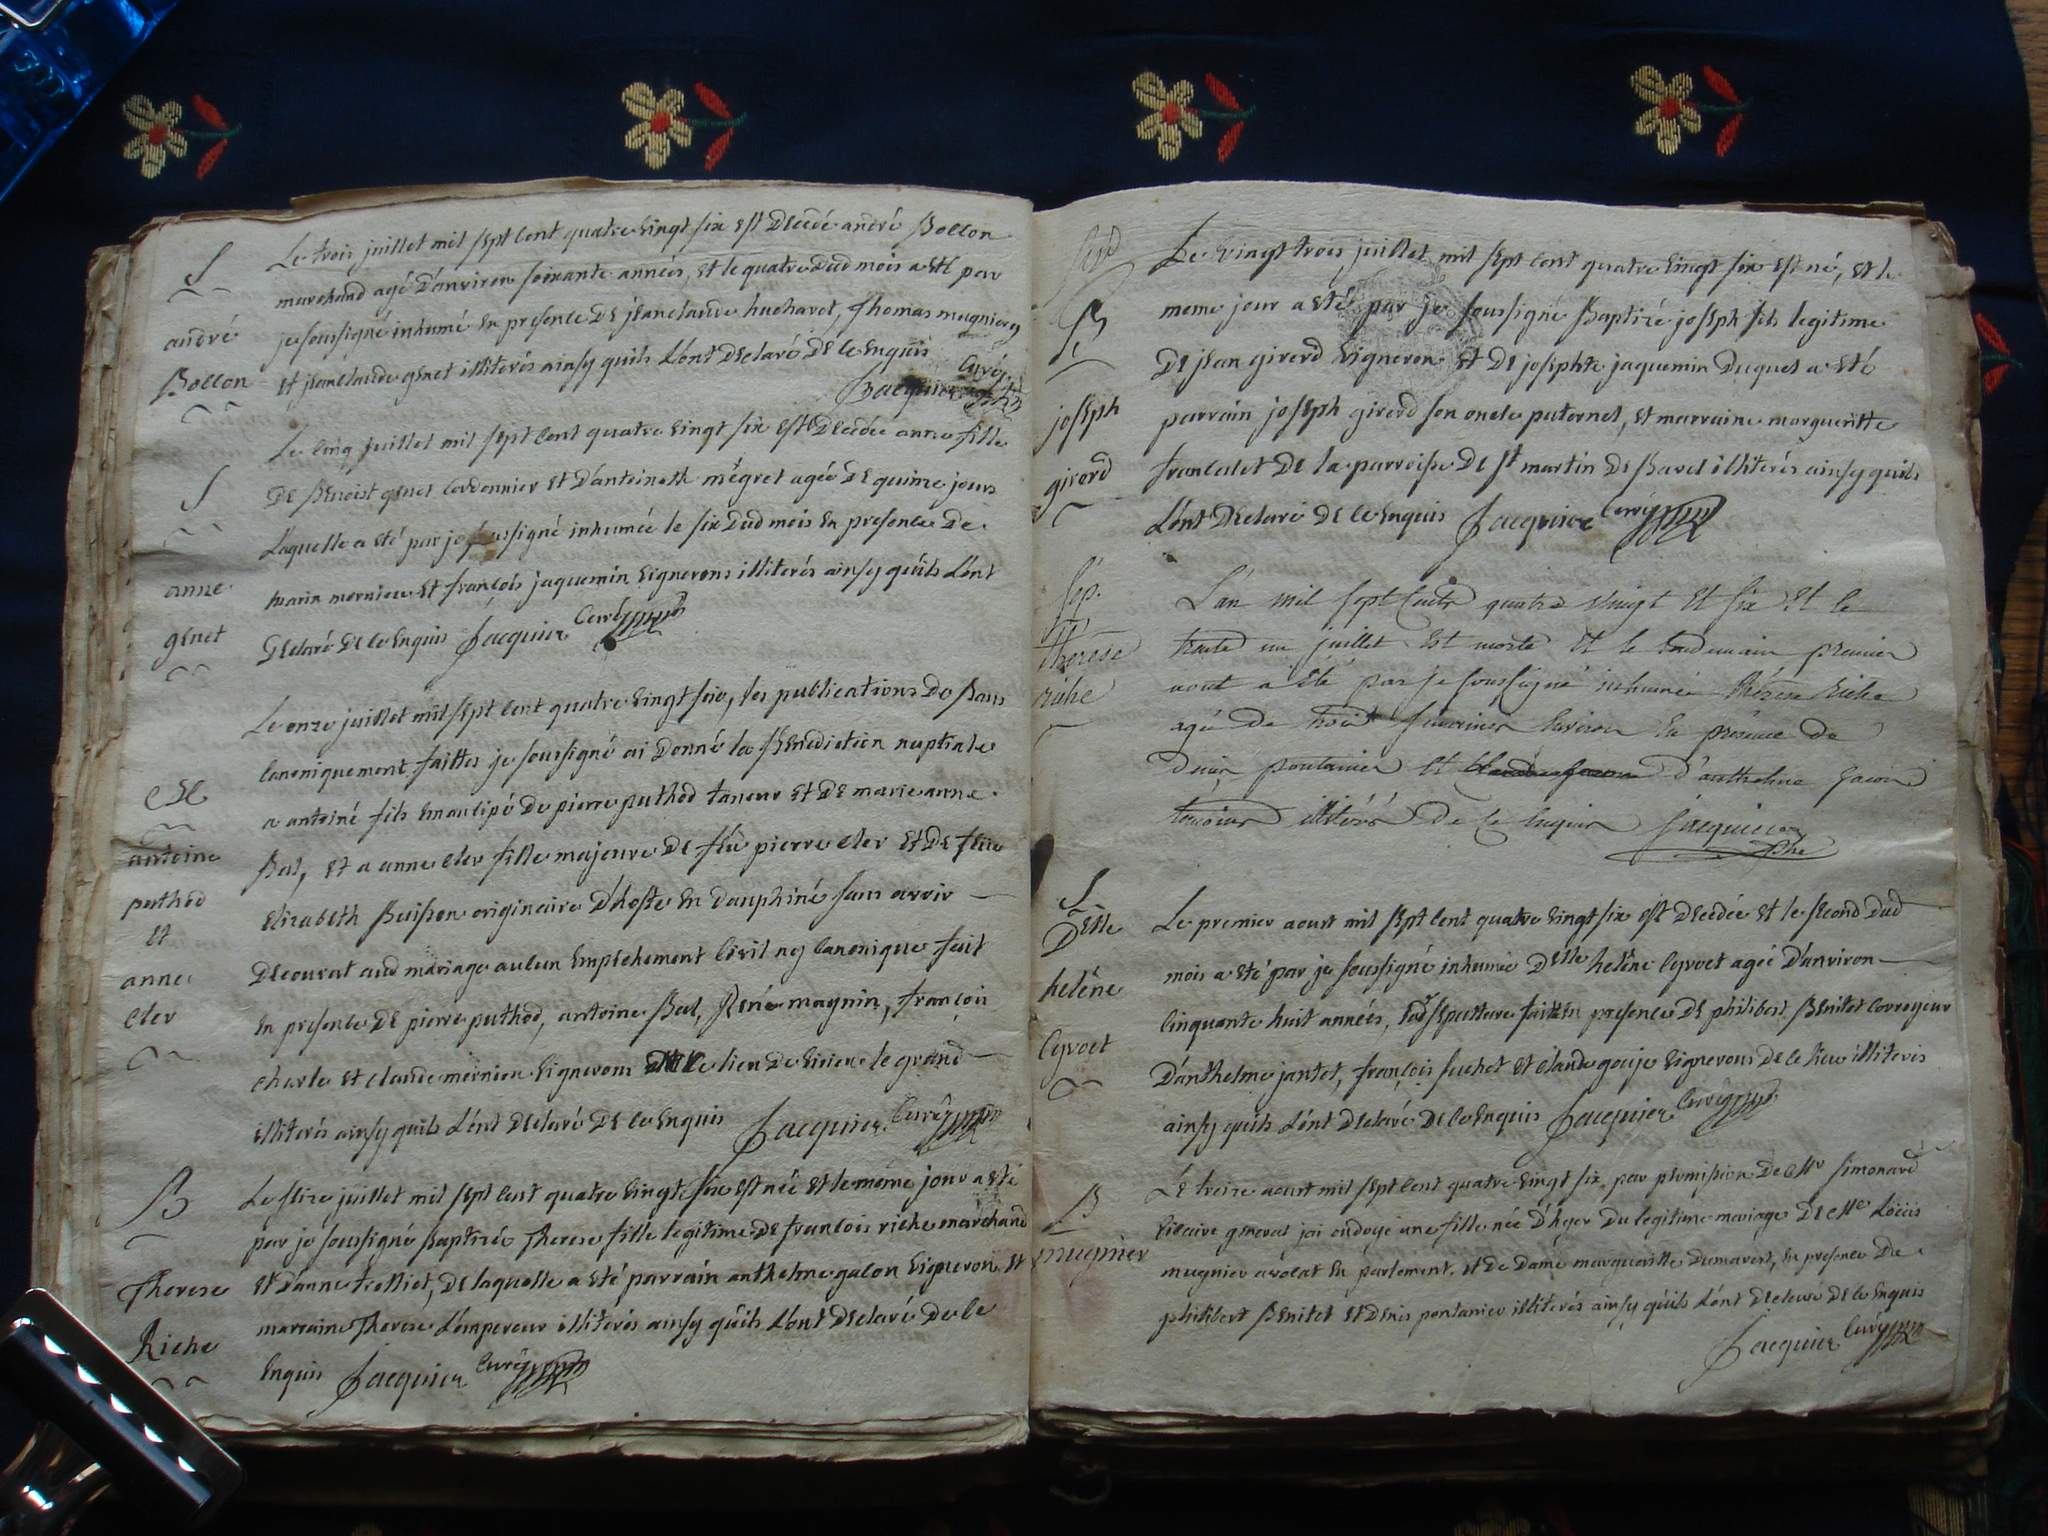 S
andré
Bollon
Le trois juillet mil sept cent quatre vingt six est decedé andré Bollon
marchand agé d'anviron soixante années, et le quatre dud mois a eté par
je soussigné inhumé en presence de jeanclaude huchavet, Thomas mugnier
et jeanclaude genet illiterés ainsy quils l'ont declaré de ce enquis
Jacquier curé
S
anne
genet
Le cinq juillet mil sept cent quatre vingt six est decedée anne fille
de Benoist genet cordonnier et d'antoinette mégret agée de quinze jours
Laquelle a eté par je soussigné inhumée le six dud mois en presence de
marin mornieu et françois jaquemin vignerons illiterés ainsy quils l'ont
declaré de ce enquis Jacquier curé
antoine
puthod
et
anne
cler
Le onze juillet mil sept cent quatre vingt six, les publications de Bans
canoniquement faittes je soussigné ai donné la Benediction nuptiale
a antoine fils emancipé de pierre puthod taneur et de marie anne
Bal, et a anne cler fille majeure de feu pierre cler et de feue
elizabeth Buisson originaire d'hoste en dauphiné sans avoir
decouvert aud mariage aucun empechement civil ny canonique fait
en presence de pierre puthod, antoine Bal, René magnin, françois
charle et claude mornieu vignerons de ce lieu de virieu le grand
illiterés ainsy quils l'ont declaré de ce enquis Jacquier curé
B
Therese
Riche
Le seize juillet mil sept cent quatre vingt six est née et le meme jour a eté
par je soussigné Baptizée Therese fille legitime de françois riche marchand
et d'anne trolliet, de laquelle a eté parrain anthelme galon vigneron et
marraine Therese l'empereur illiterés ainsy quils l'ont declaré de ce
enquis Jacquier curé
B
joseph
girord
Le vingt trois juillet mil sept cent quatre vingt six est né, et le
meme jour a eté par je soussigné Baptizé joseph fils legitime
de jean girord vigneron et de josephte jaquemin duquel a eté
parrain joseph girord son oncle paternel, et marraine margueritte
francalet de la parroisse de st martin de Bavel illiterés ainsy quils
l'ont declaré de ce enquis Jacquier curé
Sep.
Therèse
riche
L'an mil sept cents quatre vingt et six et le
trente un juillet est morte et le lendemain premier
aout a été par je soussigné inhumée thérèse riche
agée de trois semaines environ en présence de
denis pontanier et d'anthelme gacon
temoins illitérés de ce enquis Jacquier
S
Delle
heléne
Cyvoct
Le premier aoust mil sept cent quatre vingt six est decedée et le second dud
mois a eté par je soussigné inhumée Delle heléne Cyvoct agée d'anviron
cinquante huit années, lad sepulture faitte en presence de philibert Benitet corroyeur
d'anthelme jantet, françois suchet et claude gouje vignerons de ce lieu illiterés
ainsy quils l'ont declaré de ce enquis Jacquier curé
B
mugnier
Le treize aoust mil sept cent quatre vingt six, par permission de Mr Simonard
vicaire general jai ondoyé une fille née d'hyer du legitime mariage de Me Loüis
mugnier avocat en parlement, et de Dame margueritte Dumarest, en presence de
philibert Benitet et denis pontanier illiterés ainsy quils l'ont declaré de ce enquis
Jacquier curé